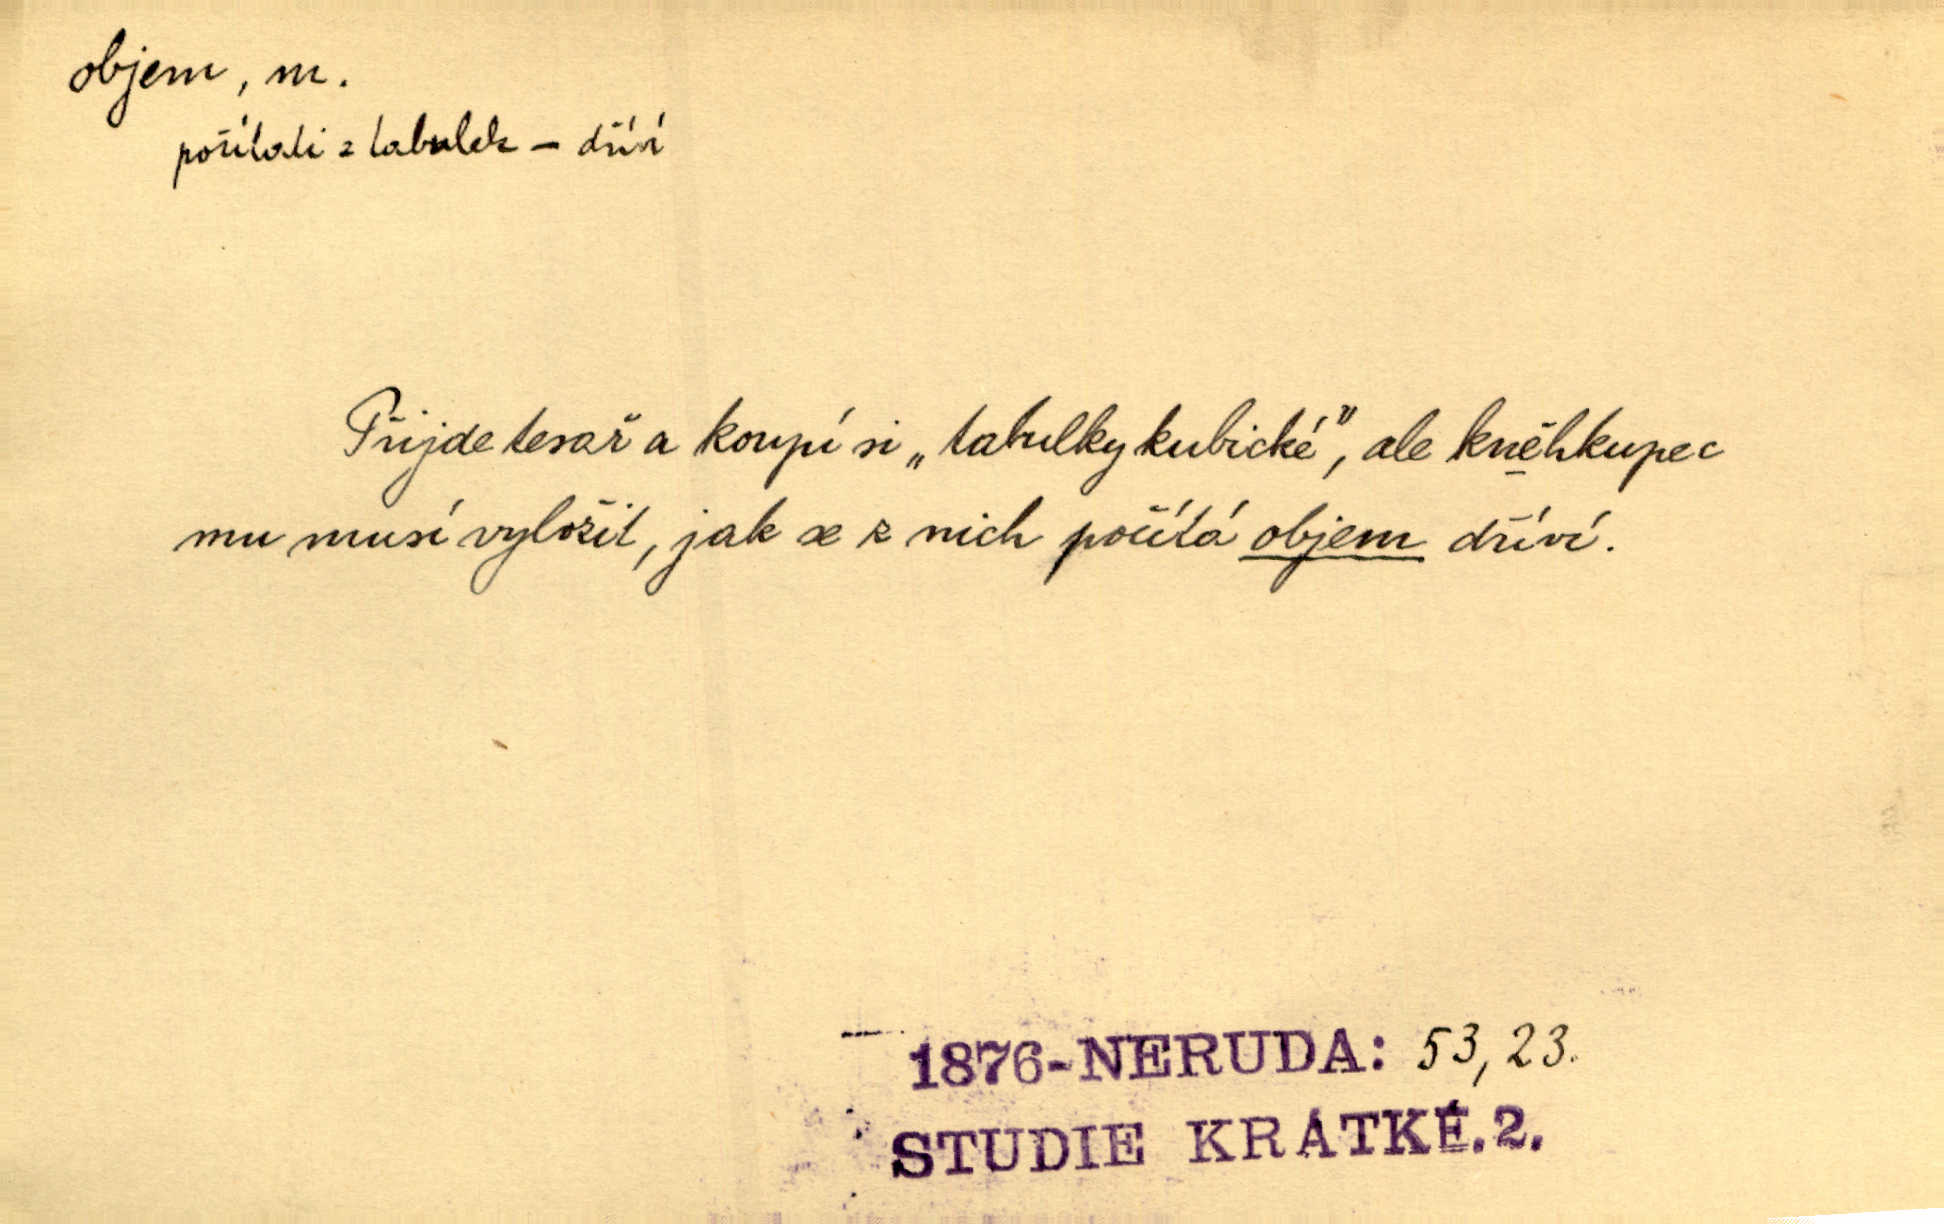 objem, m.
počítati z tabulek – dříví
Přijde tesař a koupí si „tabulky kubické", ale kněhkupec
mu musí vyložit, jak se z nich počítá objem dříví.
1876-NERUDA: 53,23.
STUDIE KRÁTKÉ.2.